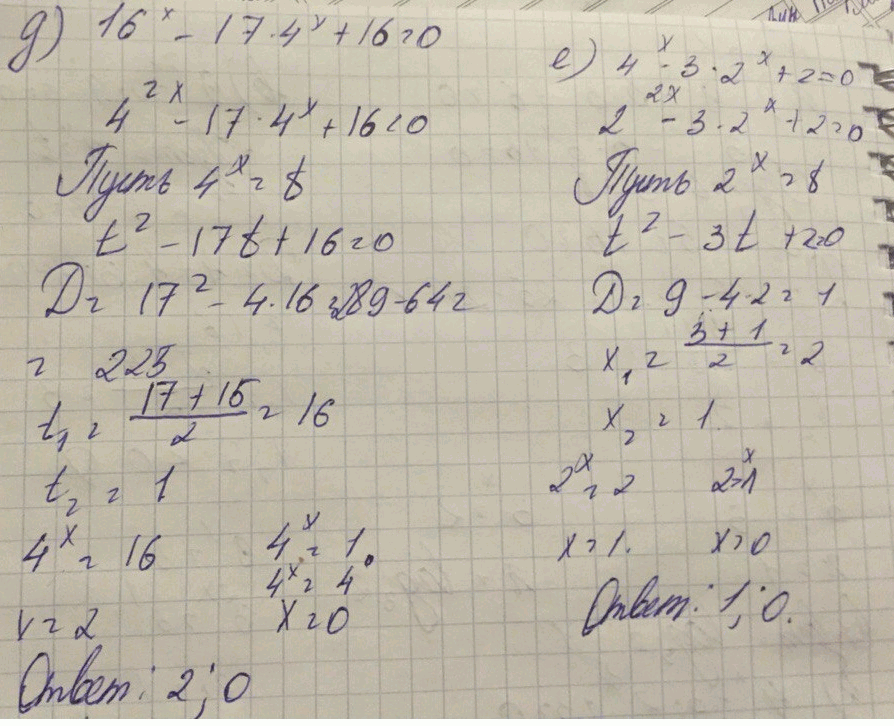 д) 16^x - 17·4^x + 16 = 0
4^2x - 17·4^x + 16 = 0
Пусть 4^x = t
t^2 - 17t + 16 = 0
D = 17^2 - 4·16 = 289 - 64 =
= 225
t₁ = (17 + 15)/2 = 16
t₂ = 1
4^x = 16 4^x = 1
4^x = 4^0
x = 2 x = 0
Ответ: 2; 0
е) 4^x - 3·2^x + 2 = 0
2^2x - 3·2^x + 2 = 0
Пусть 2^x = t
t^2 - 3t + 2 = 0
D = 9 - 4·2 = 1
x₁ = (3 + 1)/2 = 2
x₂ = 1
2^x = 2 2^x = 1
x = 1. x = 0
Ответ: 1; 0.